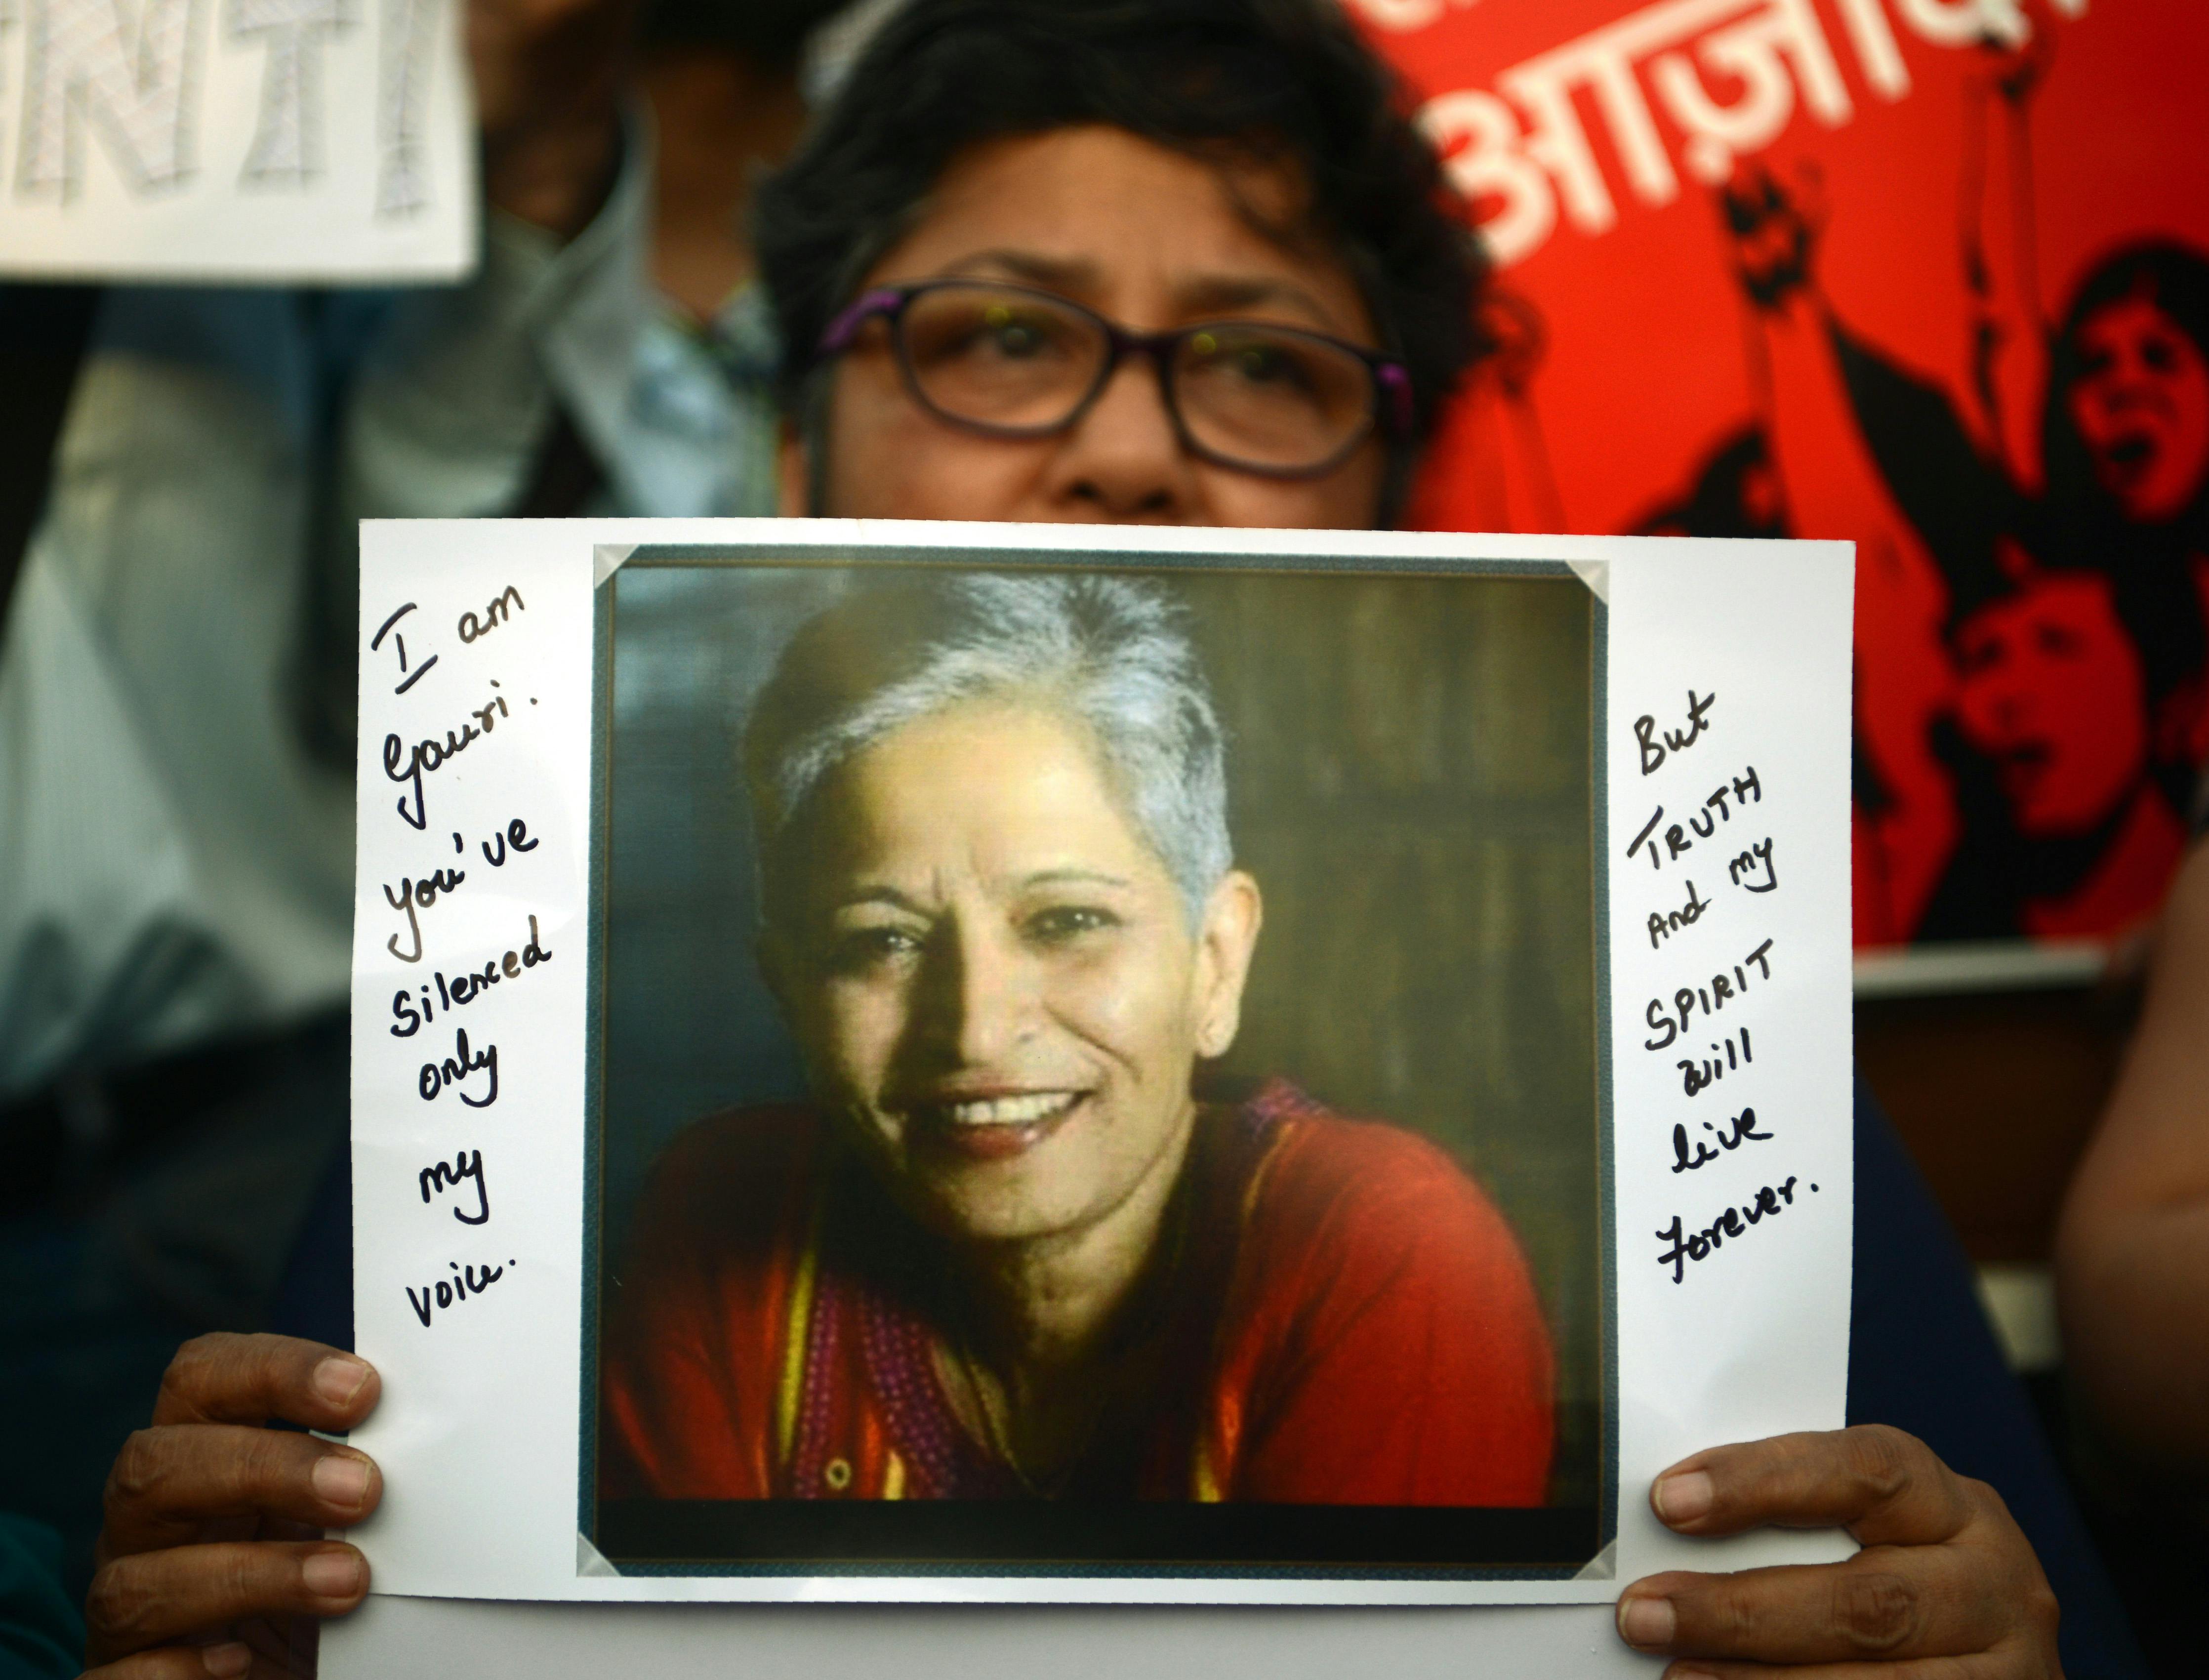 NT!
आज़ादी
I am
Gauri.
You've
Silenced
only
my
voice.
But
TRUTH
And my
SPIRIT
will
live
Forever.